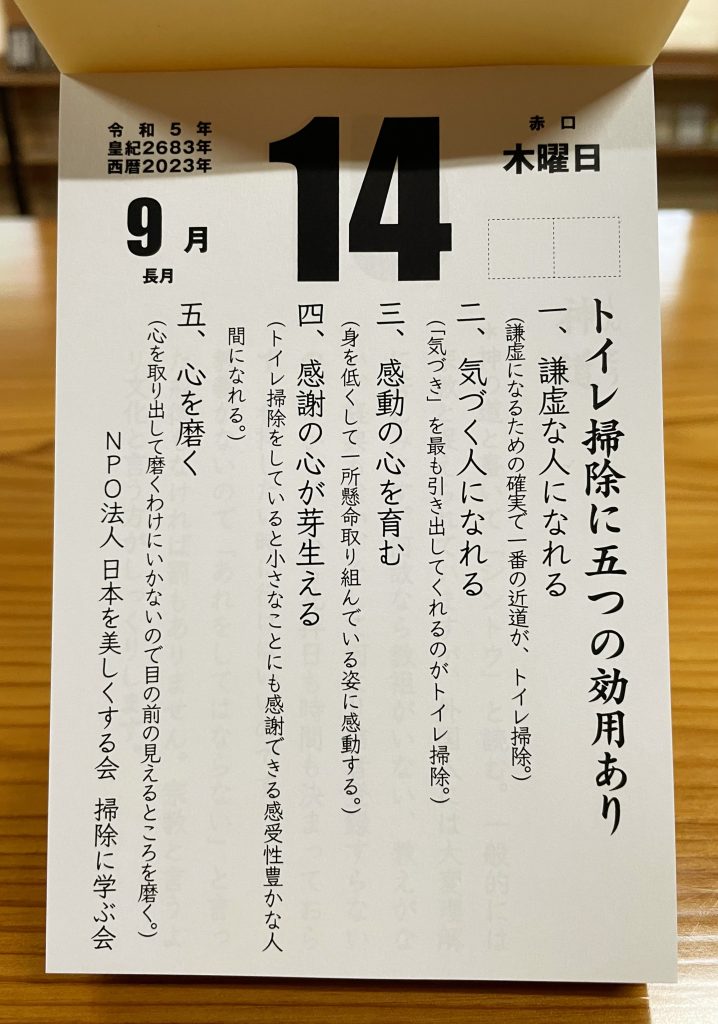 令和5年
皇紀2683年
西暦2023年
9月
長月
14
赤口
木曜日
トイレ掃除に五つの効用あり
一、謙虚な人になれる
(謙虚になるための確実で一番の近道が、トイレ掃除。)
二、気づく人になれる
(「気づき」を最も引き出してくれるのがトイレ掃除。)
三、感動の心を育む
(身を低くして一所懸命取り組んでいる姿に感動する。)
四、感謝の心が芽生える
(トイレ掃除をしていると小さなことにも感謝できる感受性豊かな人
間になれる。)
五、心を磨く
(心を取り出して磨くわけにいかないので目の前の見えるところを磨く。)
NPO法人 日本を美しくする会 掃除に学ぶ会